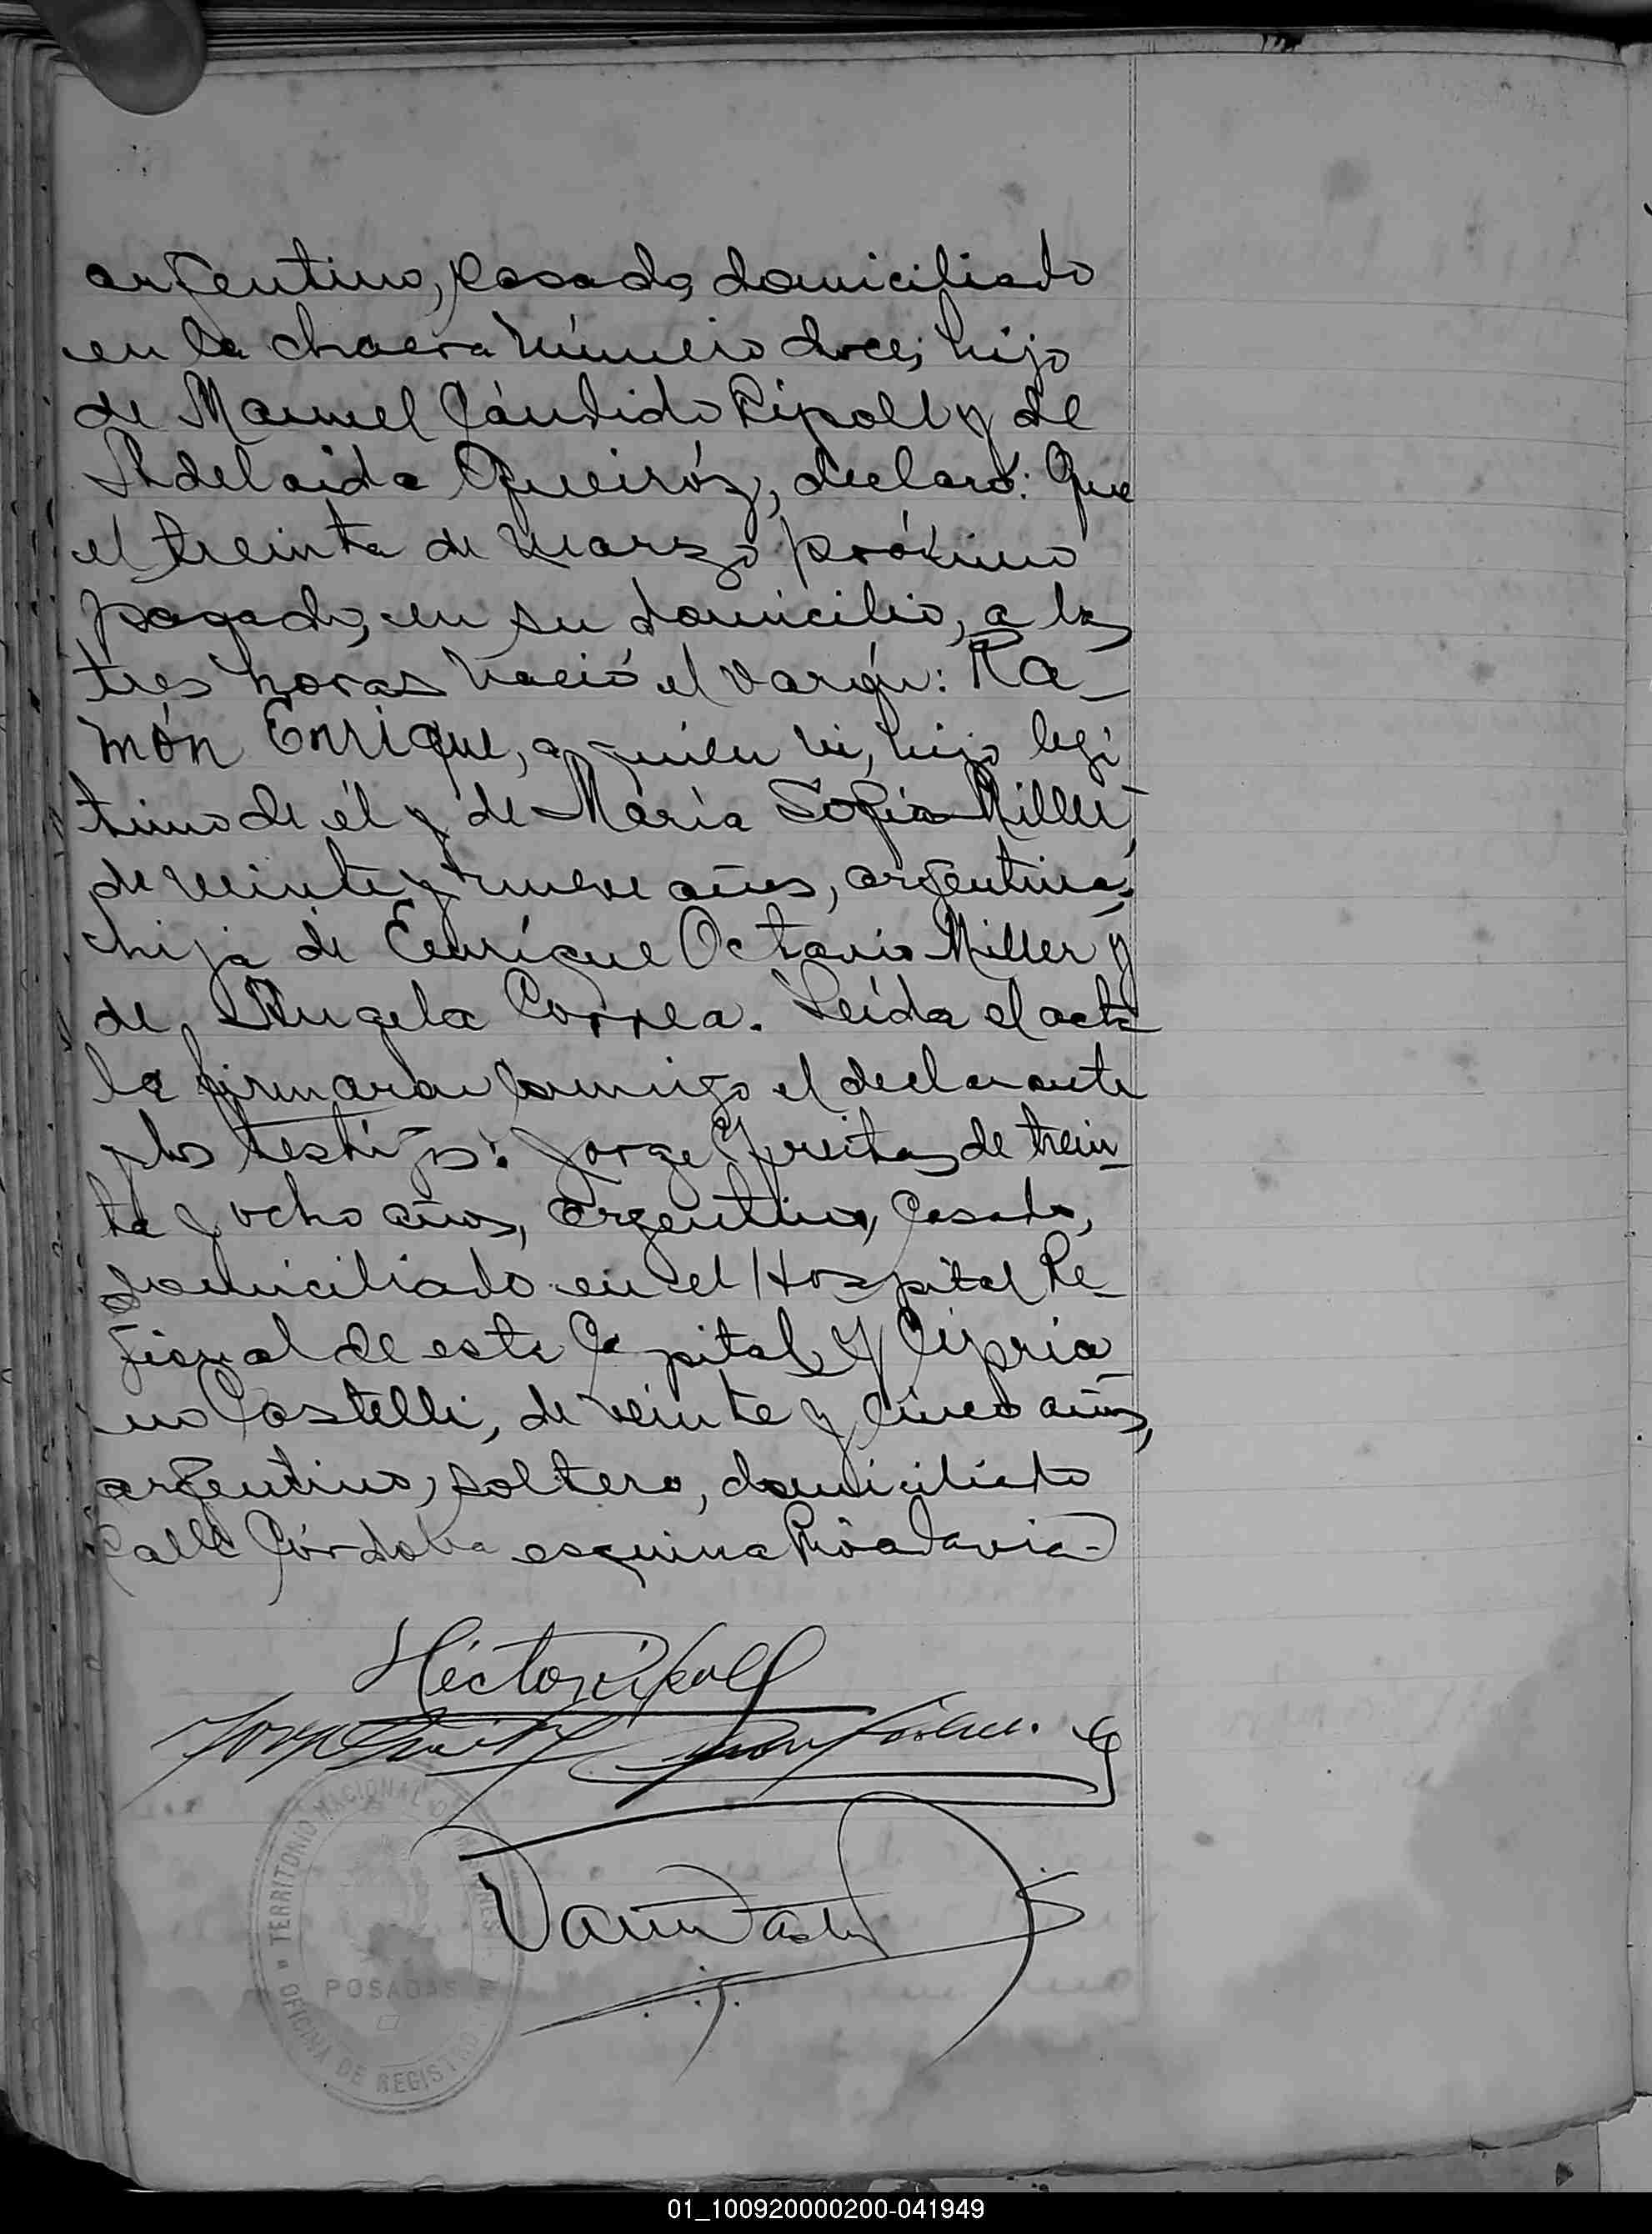 argentino, casado, domiciliado
en la chacra número doce, hijo
de Manuel Cándido Ripoll y de
Adelaida Queiróz, declaró: Que
el treinta de marzo próximo
pasado, en su domicilio, a las
tres horas nació el varón: Ra-
món Enrique, a quien vi, hijo legí
timo de él y de María Sofía Miller
de veinte y nueve años, argentina,
hija de Enrique Octavio Miller y
de Angela Correa. Leída el acta
la firmaron conmigo el declarante
y los testigos: Jorge Freitas, de trein-
ta y ocho años, argentino, casado,
domiciliado en el Hospital Re-
gional de esta Capital y Cipria
no Castelli, de veinte y cinco años,
argentino, soltero, domiciliado
calle Córdoba esquina Rivadavia-
Héctor Ripoll
TERRITORIO NACIONAL DE MISIONES
POSADAS
OFICINA DE REGISTRO
01_100920000200-041949